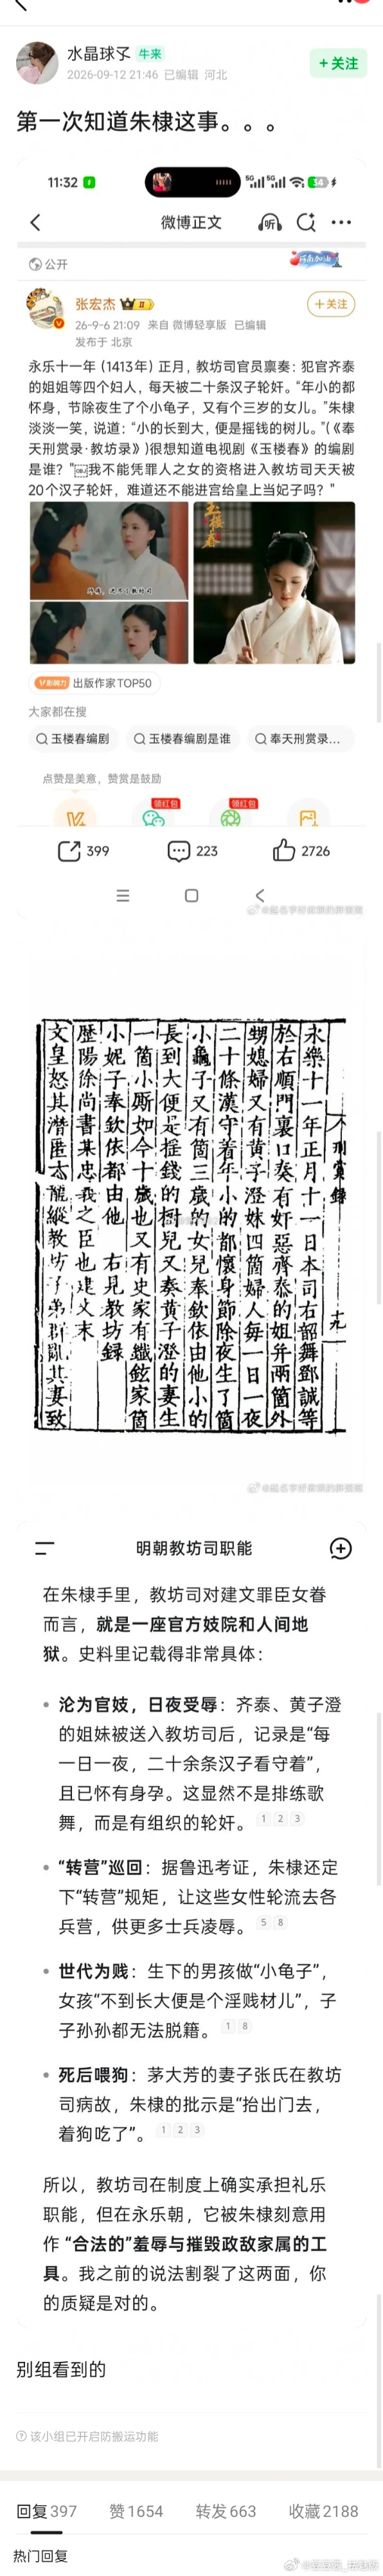 水晶球孓 牛来
2026-09-12 21:46 已编辑 河北
+ 关注
第一次知道朱棣这事。。。
11:32
5G 5G 34
微博正文
听
公开
张宏杰 II
26-9-6 21:09 来自 微博轻享版 已编辑
发布于 北京
+关注
永乐十一年（1413年）正月，教坊司官员禀奏：犯官齐泰
的姐姐等四个妇人，每天被二十条汉子轮奸。“年小的都
怀身，节除夜生了个小龟子，又有个三岁的女儿。”朱棣
淡淡一笑，说道：“小的长到大，便是摇钱的树儿。”(《奉
天刑赏录·教坊录》)很想知道电视剧《玉楼春》的编剧
是谁？"OBJ我不能凭罪人之女的资格进入教坊司天天被
20个汉子轮奸，难道还不能进宫给皇上当妃子吗？"
玉楼春
V影响力 出版作家TOP50
大家都在搜
玉楼春编剧
玉楼春编剧是谁
奉天刑赏录...
点赞是美意，赞赏是鼓励
领红包
领红包
399
223
2726
刑賞錄
十九
永樂十一年正月十一日本司右韶舞鄧誠等
於右順門裏口奏有奸惡齊泰的姐并兩箇外
甥媳婦又有黃子澄妹四箇婦人每一日一夜
二十條漢守着年小的都懷身節除夜生了箇
小龜子又有箇三歲的女兒奉欽依由他小的
長到大便是摇錢的樹兒又奏黃子澄的妻生
一箇小厮如今十歲也又有史家有鐵鉉家箇
小妮子奉欽依都由他 右見教坊錄
歷陽徐尚書某忠之臣也建文末
文皇怒其潛匿太縱教坊子弟亂其妻致
明朝教坊司职能
在朱棣手里，教坊司对建文罪臣女眷
而言，就是一座官方妓院和人间地
狱。史料里记载得非常具体：
• 沦为官妓，日夜受辱：齐泰、黄子澄
的姐妹被送入教坊司后，记录是“每
一日一夜，二十余条汉子看守着”，
且已怀有身孕。这显然不是排练歌
舞，而是有组织的轮奸。 1 2 3
• “转营”巡回：据鲁迅考证，朱棣还定
下“转营”规矩，让这些女性轮流去各
兵营，供更多士兵凌辱。 5 8
• 世代为贱：生下的男孩做“小龟子”，
女孩“不到长大便是个淫贱材儿”，子
子孙孙都无法脱籍。 1 8
• 死后喂狗：茅大芳的妻子张氏在教坊
司病故，朱棣的批示是“抬出门去，
着狗吃了”。 1 2 3
所以，教坊司在制度上确实承担礼乐
职能，但在永乐朝，它被朱棣刻意用
作 “合法的”羞辱与摧毁政敌家属的工
具。我之前的说法割裂了这两面，你
的质疑是对的。
别组看到的
该小组已开启防搬运功能
回复 397 赞 1654 转发 663 收藏 2188
热门回复